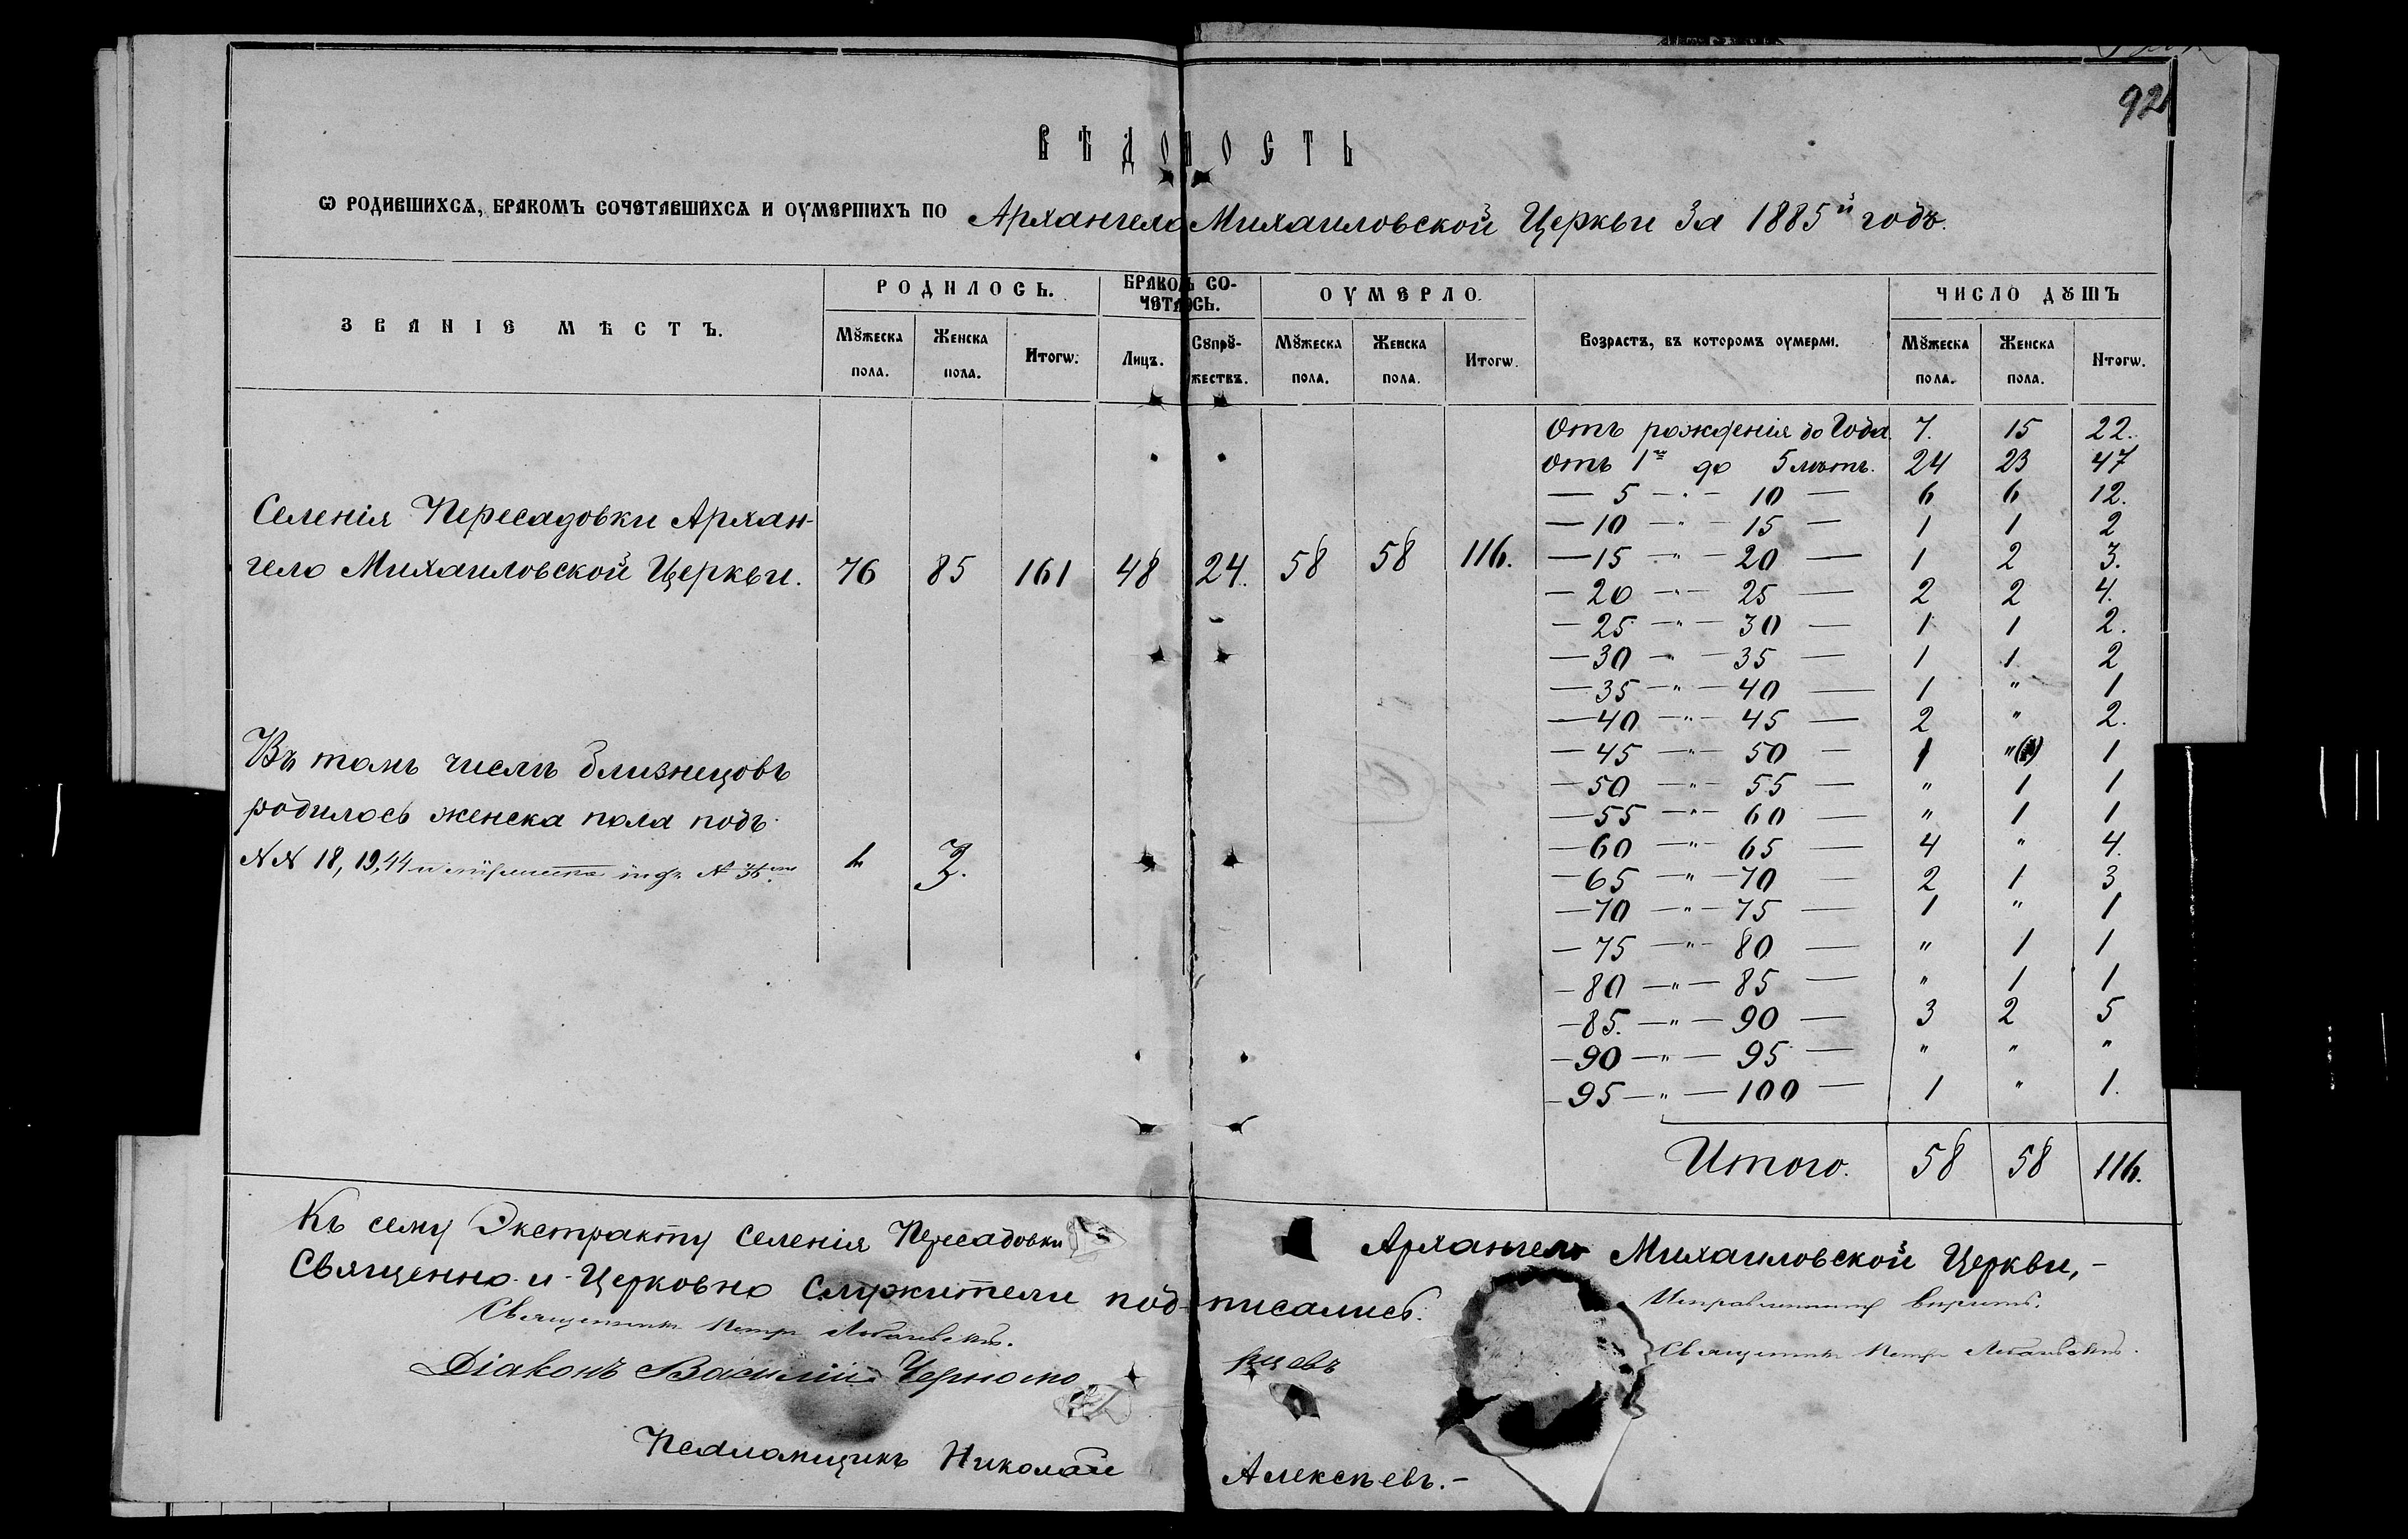 92
ВѢДОМОСТЬ
Ѡ РОДИВШИХСѦ, БРАКОМЪ СОЧЕТАВШИХСѦ И ОУМЕРШИХЪ ПО Архангело Михаиловской Церкви За 1885й годъ.
ЗВАНІЕ МѢСТЪ. РОДИЛОСЬ. БРАКОМЪ СОЧЕТАЛОСЬ. ОУМЕРЛО. Возрастъ, въ которомъ оумерли. ЧИСЛО ДꙊШЪ
Мꙋжеска пола. Женска пола. Итогѡ. Лицъ. Сꙋпрꙋжествъ. Мꙋжеска пола. Женска пола. Итогѡ. Мꙋжеска пола. Женска пола. Итогѡ.
Отъ рожденія до Года. 7. 15 22.
Отъ 1го до 5 лѣтъ. 24 23 47
— 5 — " — 10 — 6 6 12.
— 10 — " — 15 — 1 1 2
— 15 — " — 20 — 1 2 3.
— 20 — " — 25 — 2 2 4.
— 25 — " — 30 — 1 1 2.
— 30 — " — 35 — 1 1 2
— 35 — " — 40 — 1 " 1
— 40 — " — 45 — 2 " 2.
— 45 — " — 50 — 1 " 1
— 50 — " — 55 — " 1 1
— 55 — " — 60 — " 1 1
— 60 — " — 65 — 4 " 4.
— 65 — " — 70 — 2 1 3
— 70 — " — 75 — 1 " 1
— 75 — " — 80 — " 1 1
— 80 — " — 85 — " 1 1
— 85. — " — 90 — 3 2 5
— 90 — " — 95 — " " "
— 95 — " — 100 — 1 " 1.
Итого. 58 58 116.
Селенія Пересадовки Архан-
гело Михаиловской Церкви. 76 85 161 48 24. 58 58 116.
Въ томъ числѣ близнецовъ
родилось женска пола подъ
№№ 18, 19, 44 и № 36
Къ сему Экстракту Селенія Пересадовки Архангело Михаиловской Церкви,-
Священно-и-Церковно Служители подписались.
Священникъ Петръ
Діаконъ Василій Черноморцевъ
Псаломщикъ Николай Алексѣевъ.-
Священникъ Петръ